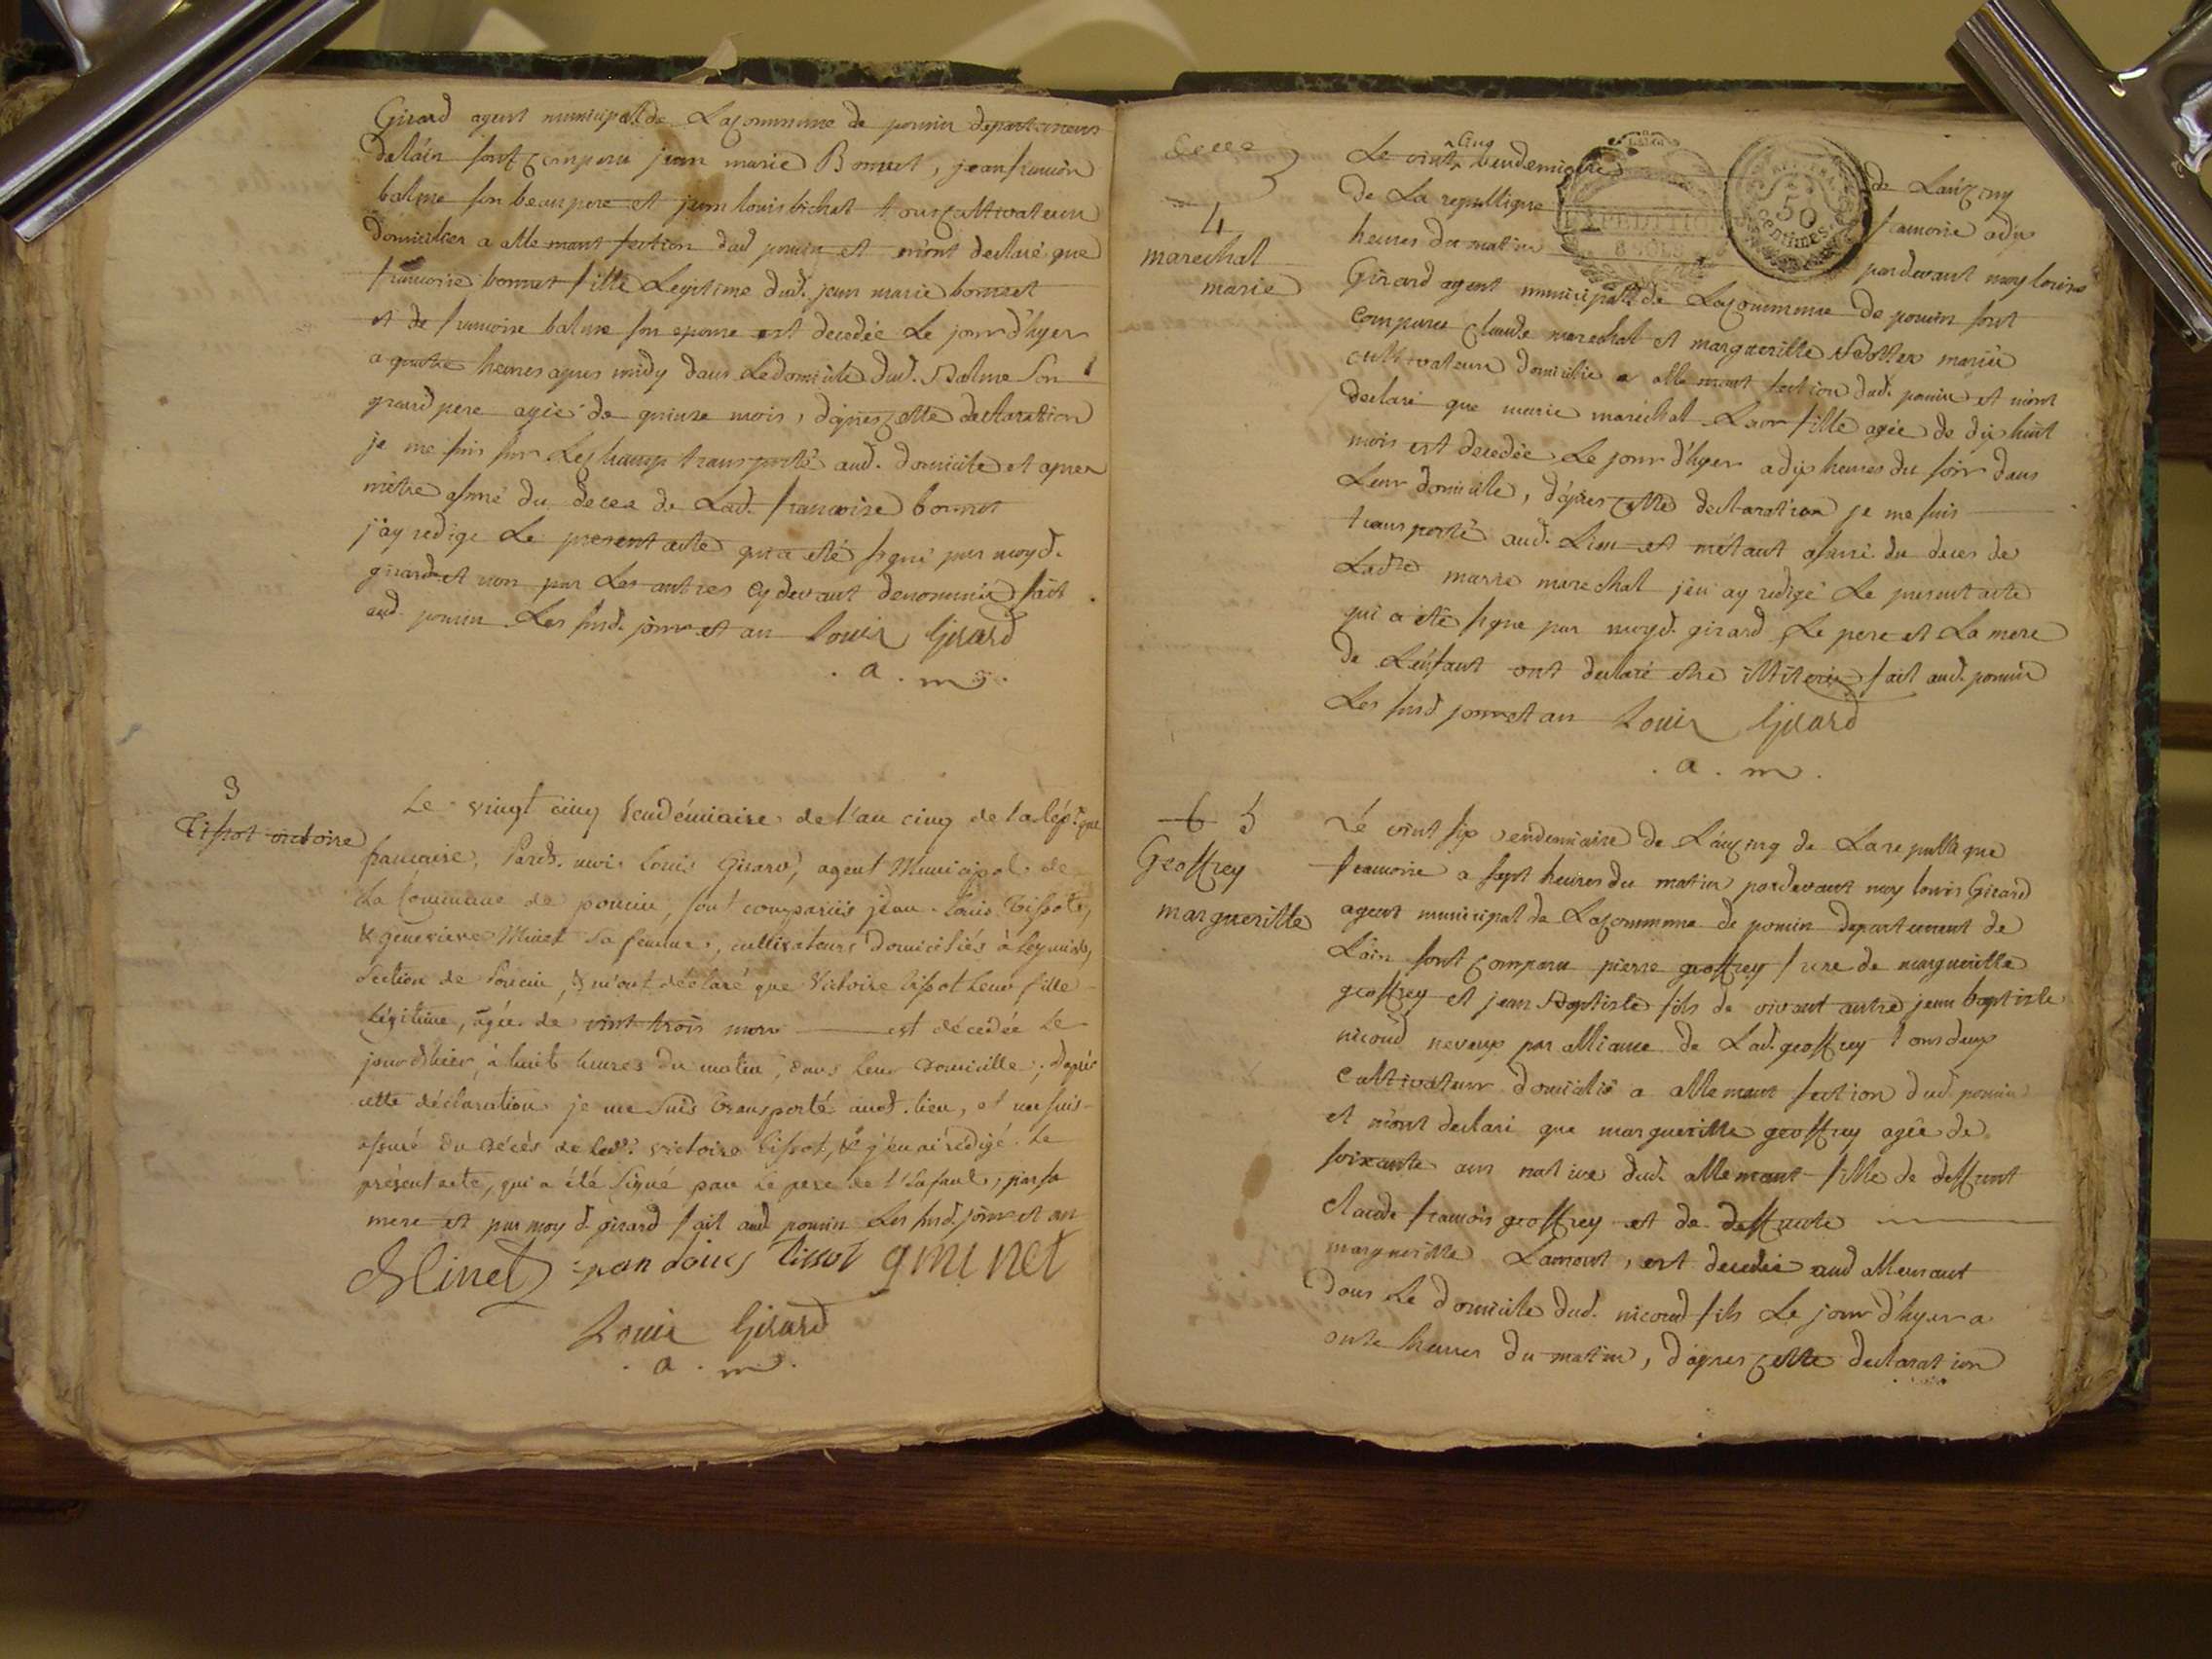 Girard agent municipal de La commune de poncin departement
de lain sont comparu jean marie Bonnet, jean francois
balme son beaupere et jean louis bichat tous cultivateurs
domiciliés a allemant section dud poncin et m'ont declaré que
francoise bonnet fille Legitime dud. jean marie bonnet
et de francoise balme son epouse est decedée Le jour d'hyer
a quatre heures apres midy dans Le domicile dud. Balme son
grand pere agée de quinze mois, d'apres cette declaration
je me suis sur Le champ transporté aud. domicile et apres
m'etre assuré du deces de Lad. francoise bonnet
j'ay redigé Le present acte qui a eté signé par moyd.
girard et non par Les autres cy devant denommés fait
aud. poncin Les susd. jour et an Louis Girard
. a . m .
3
Tissot victoire
Le vingt cinq Vendémiaire de l'an cinq de la Rép.que
francaise, Pard. moi Louis Girard, agent Municipal de
La Commune de poncin, sont comparus jean Louis Tissot,
& genevieve Minet sa femme, cultivateurs domiciliés à Leymiat,
Section de Poncin, & m'ont déclaré que Victoire tissot Leur fille
Légitime, agée de vint trois mois est décédée Le
jour d'hier, à huit heures du matin, dans Leur domicille; d'après
cette déclaration je me suis transporté aud. lieu, et me suis
assuré du décès de lad.e victoire tissot, & j'en ai rédigé Le
présent acte, qui a été signé par Le pere de l'Enfant, par sa
mere et par moy d. girard fait aud poncin Les susd. jour et an
Minet jean louis tissot g mi net
Louis Girard
. a . m .
4
marechal
marie
Le vint cinq vendemiaire de Lan cinq
de La republique francoise a dix
heures du matin pardevant moy louis
EXPEDITION
8 SOLS
50
centimes
Girard agent municipal de La commune de poncin sont
comparu claude marechal et marguerite mariés
cultivateurs domicilié a allemant section dud. poncin et m'ont
declaré que marie marechal Leur fille agée de dix huit
mois est decedée Le jour d'hyer a dix heures du soir dans
Leur domicile, d'apres cette declaration je me suis
transporté aud. Lieu et m'étant assuré du deces de
Ladte marie marechal j'en ay redigé Le present acte
qui a eté signe par moyd. girard, Le pere et La mere
de L'enfant ont declaré etre illiterés fait aud. poncin
Les susd jour et an Louis Girard
. a . m .
6 5
Geoffrey
marguerille
Le vint six vendemiaire de L'an cinq de La republique
francoise a sept heures du matin pardevant moy louis Girard
agent municipal de La commune de poncin departement de
L'ain sont comparu pierre geoffrey frere de marguerille
geoffrey et jean Baptiste fils de vivant autre jean baptiste
nicoud neveux par alliance de Lad. geoffrey tous deux
cultivateur domicilié a allemant section dud poncin
et m'ont declaré que marguerille geoffrey agée de
soixante ans native dud. allemant fille de deffunt
claude francois geoffrey et de deffunte
marguerille Lamout, est decedée aud allemant
dans Le domicile dud. nicoud fils Le jour d'hyer a
onze heures du matin, d'apres cette declaration